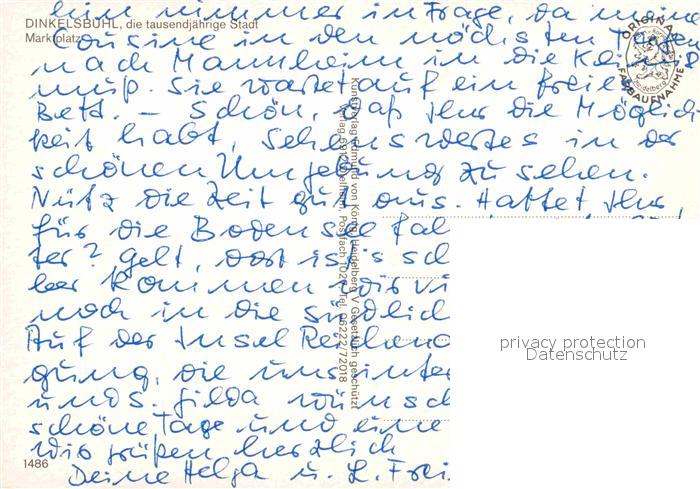 hin nimmer in Frage, da meine
DINKELSBÜHL, die tausendjährige Stadt
Marktplatz
Cousine in den nächsten Tagen
nach Mannheim in die Klinik
muß. Sie wartet auf ein freies
Bett. – Schön, daß Ihr die Möglich-
keit habt, Sehenswertes in der
schönen Umgebung zu sehen.
Nützt die Zeit gut aus. Hattet Ihr
für die Bodensee fal
ter? Gelt, dort ist's sch
ber kommen wir vi
noch in die südlich
Auf der Insel Reichena
gung, die uns inter
und S. Gilda wünsch
schöne Tage und eine
Wir grüßen herzlich
Deine Helga u. L. Frei
1486
ORIGINAL
FARBAUFNAHME
Heidelberg
Kunstverlag Edmund von König, Heidelberg V Gesetzlich geschützt
Verlag, 6912 Dielheim, Postfach 1027, Tel. 06222/72018
privacy protection
Datenschutz